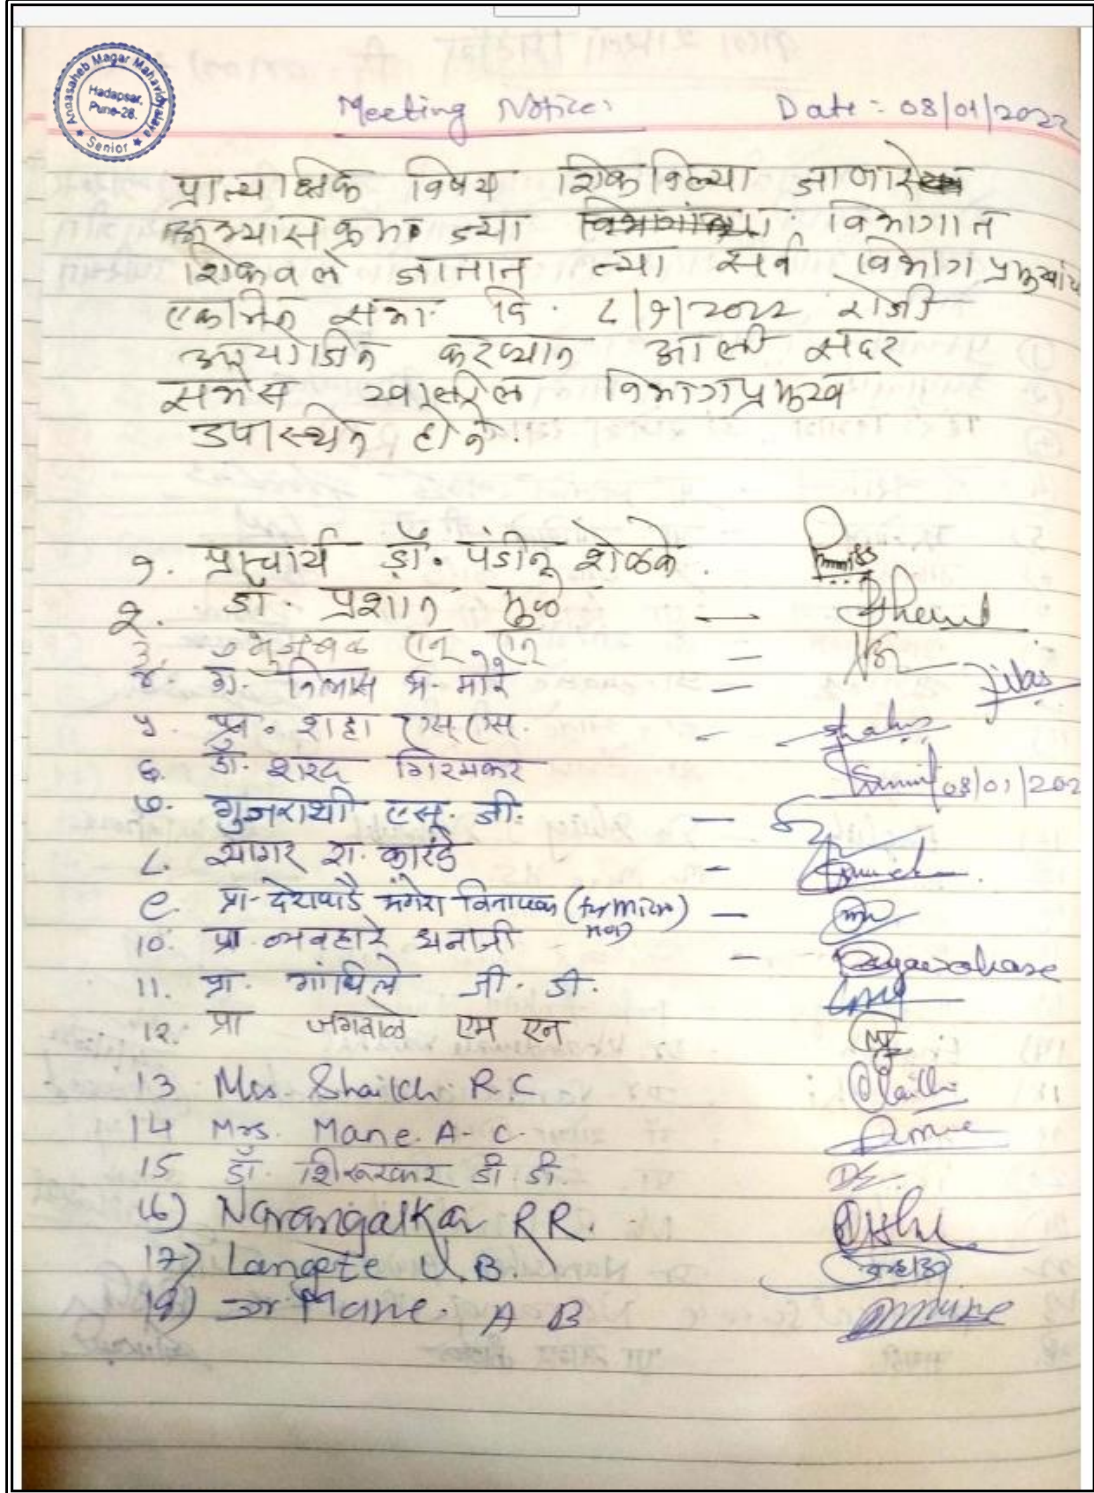 Annasaheb Magar Mahavidyalaya
Hadapsar,
Pune-28.
★ Senior ★
Meeting Notice: Date: 08/01/2022
प्रात्यक्षिक विषय शिकविल्या जाणारे
अभ्यासक्रम ज्या विभागात
शिकवले जातात त्या सर्व विभाग प्रमुखांच
एकत्रित सभा दि. ८/१/2022 रोजी
आयोजित करण्यात आली सदर
सभेस खालील विभागप्रमुख
उपस्थित होते.
१. प्राचार्य डॉ. पंडीत शेळके.
२. डॉ. प्रशांत मुळे —
३. भुजबळ एन. एन —
४. डॉ. विलास भ. मोरे —
५. प्रा. शहा एस.एस. -
६. डॉ. शरद गिरमकर 08/01/202
७. गुजराथी एस. जी. —
८. सागर रा. कारंडे -
९. प्रा-देशपांडे मंगेश विनायक (for micro —
10. प्रा व्यवहारे धनाजी -
11. प्रा. गांधिले जी. डी.
१२. प्रा जगताळे एम एन
13 Mrs. Shaikh R.C
14 Mrs. Mane. A- C.
15 डॉ. शिरूरकर डी. डी.
16) Narangalkar R R.
17) Langote U.B.
18) Dr Mane. A B